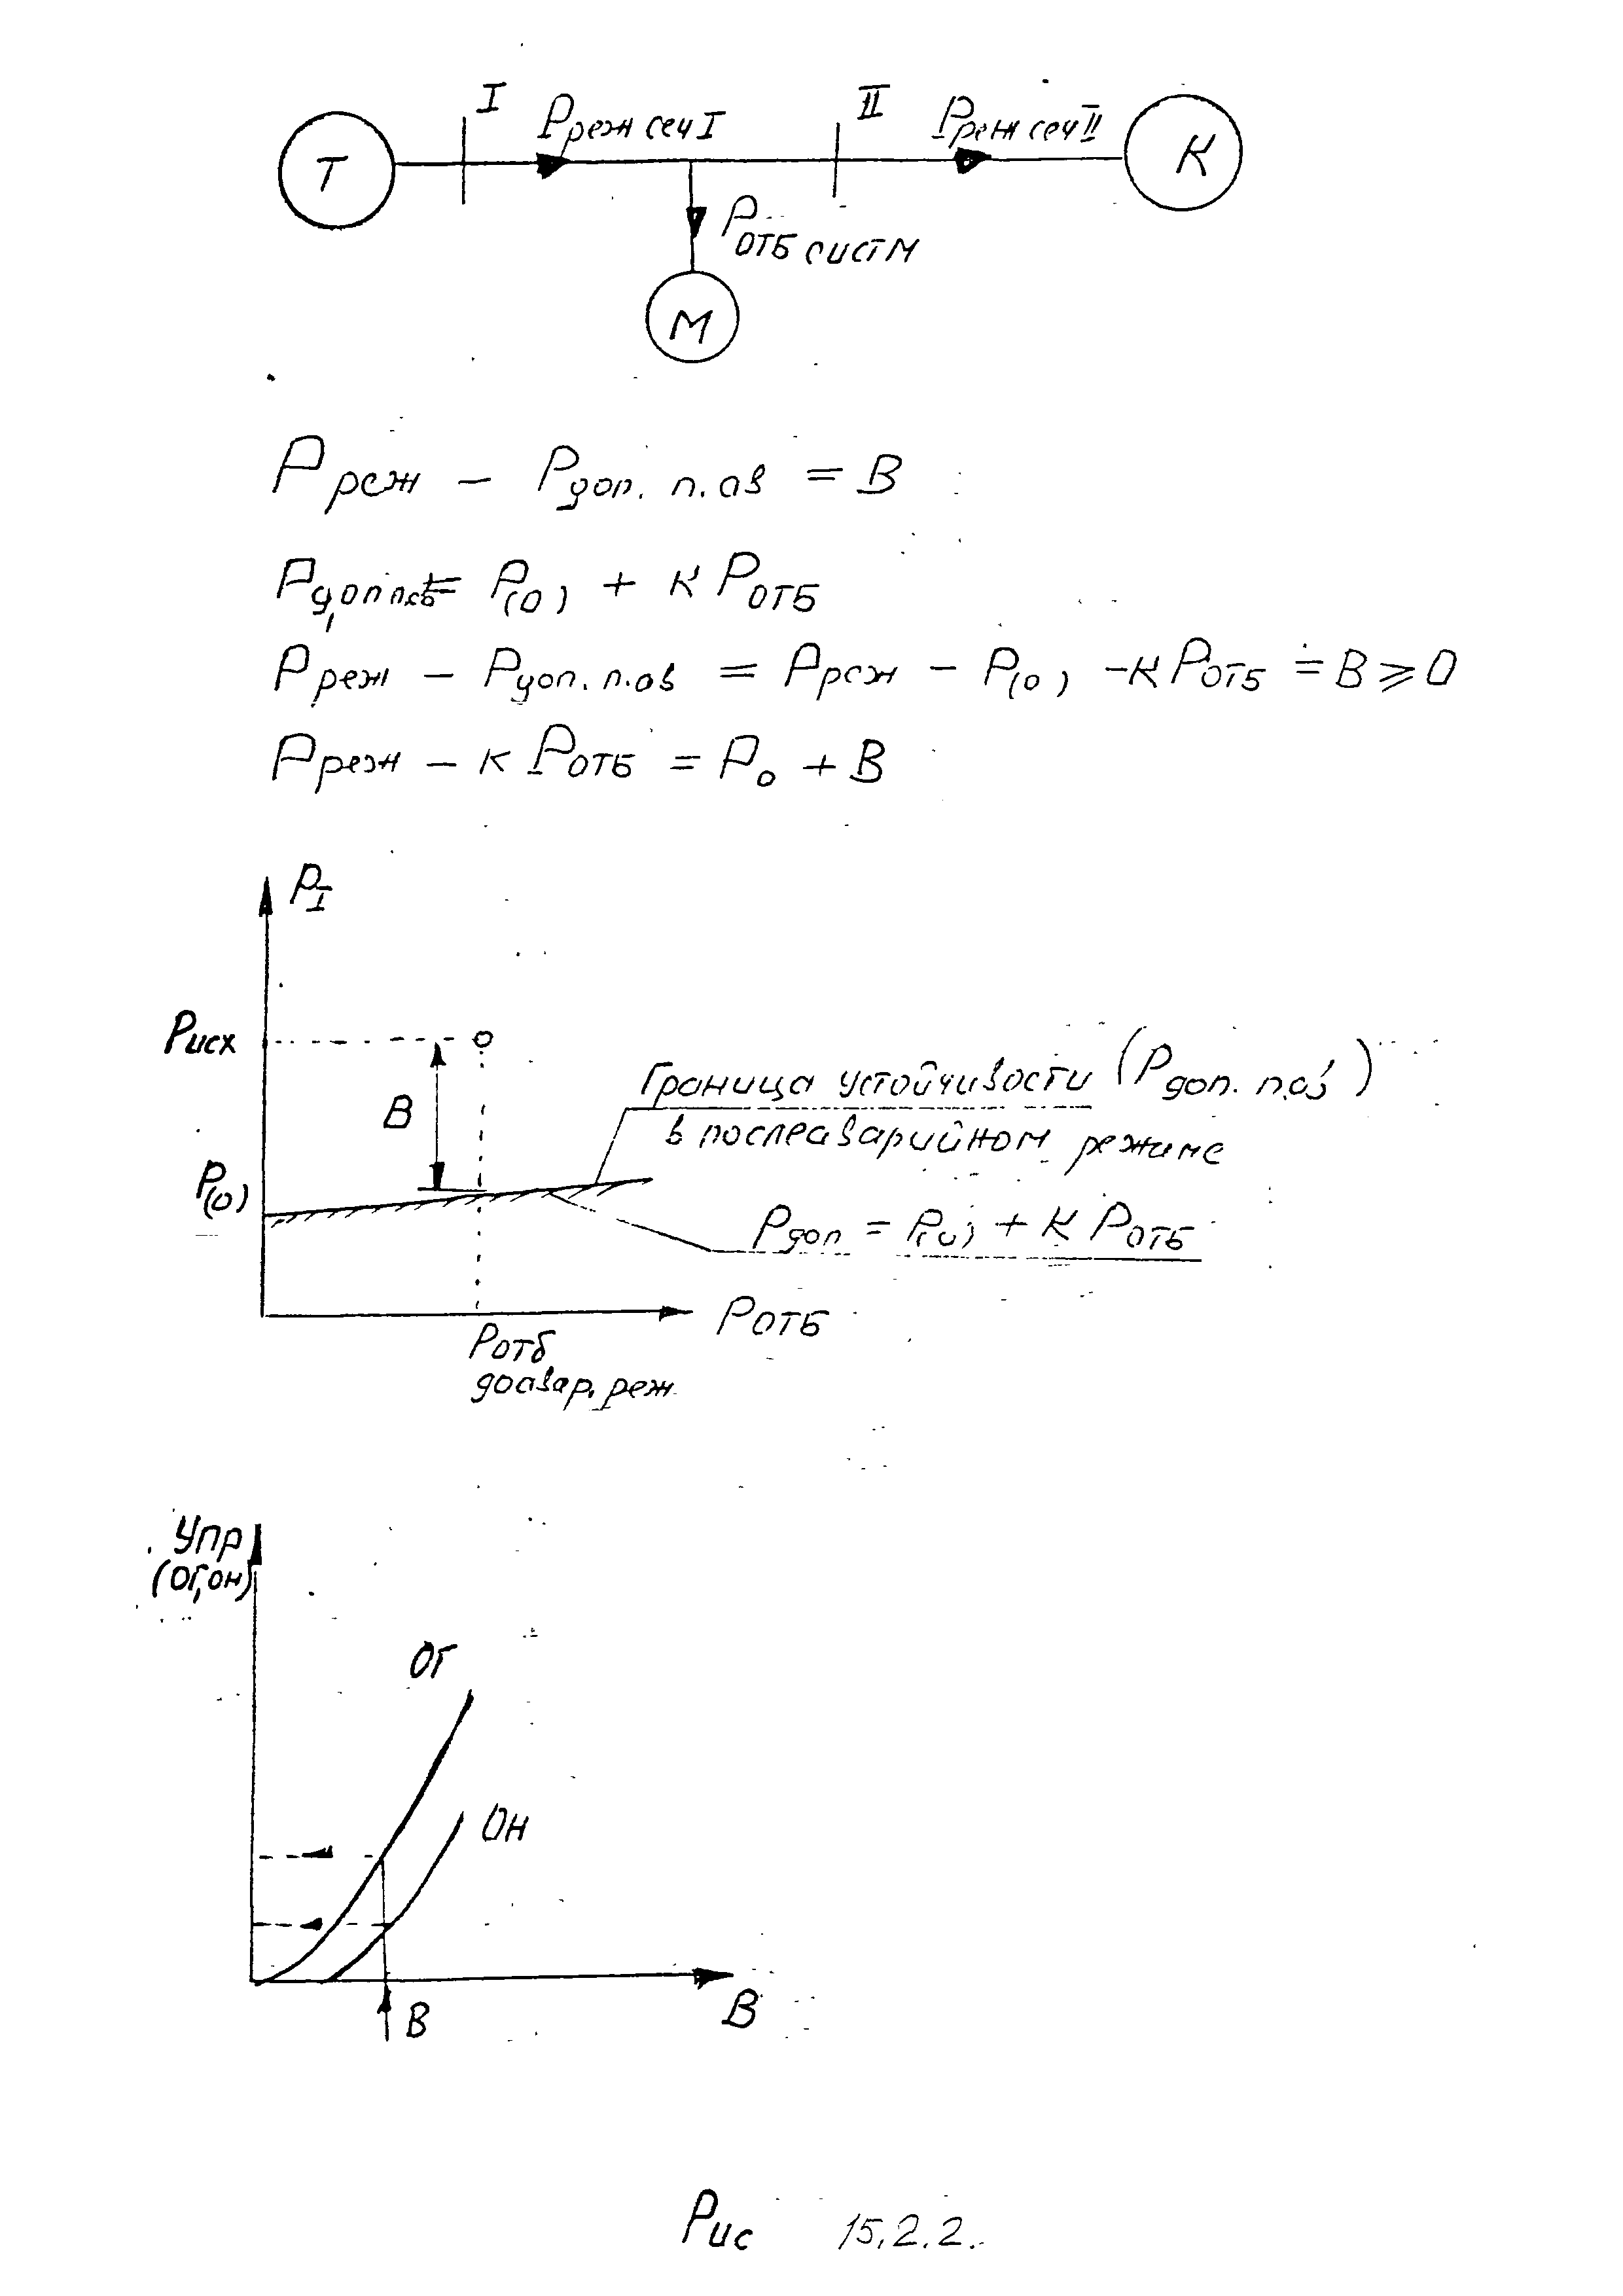 I P реж сеч I II P реж сеч II
Т К
P отб сист М
М
P реж – P доп. п.ав = В
P доп п.ав = P(0) + К P отб
P реж – P доп. п.ав = P реж – P(0) – К P отб = В ≥ 0
P реж – К P отб = P0 + В
P I
P исх
Граница устойчивости (P доп. п.ав)
В
в послеаварийном режиме
P(0)
P доп = P(0) + К P отб
P отб
P отб
доавар. реж.
Упр
(ОГ, ОН)
ОГ
ОН
В
В
Рис 15.2.2.